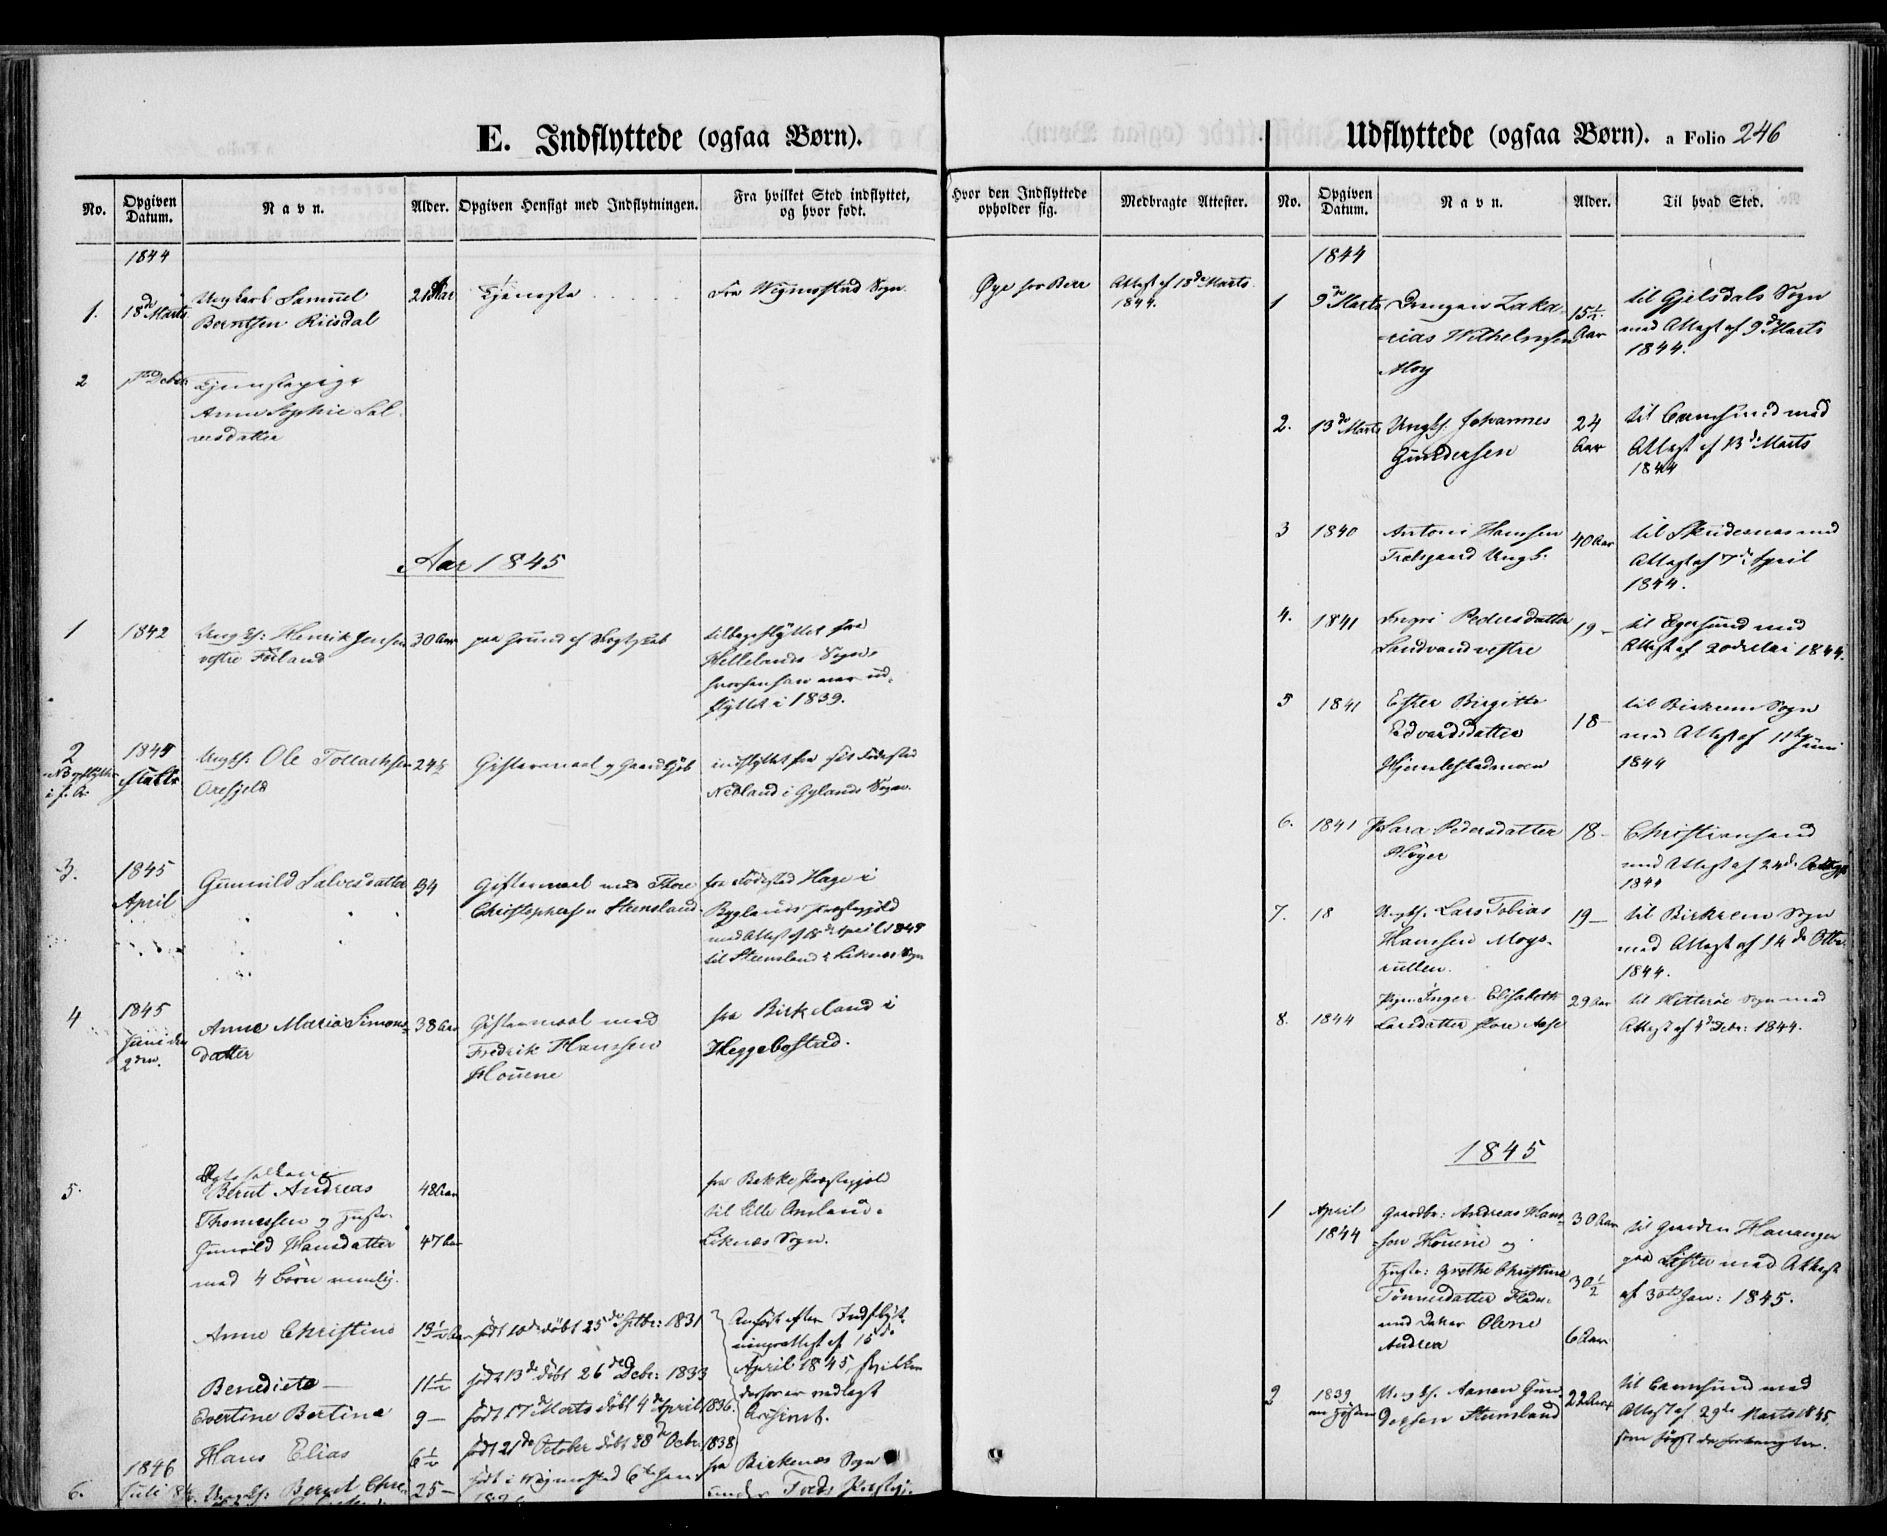 E. Indflyttede (ogsaa Børn).
No.
Opgiven Datum.
Navn.
Alder.
Opgiven Hensigt med Indflytningen.
Fra hvilket Sted indflyttet, og hvor født.
Hvor den Indflyttede opholder sig.
Medbragte Attester.
1844
1. 18de Marts
Ungkarl Samuel
Berntsen Risdal
21 Aar
Tjeneste
Fra Wigmostad Sogn
Øye for Bere
Attest af 18de Marts
1844.
2
Tjenestepige
Anne Sophie Sal
vesdatter
Aar 1845
1
1842
Ungk: Henrik Jensen
vestre Förland
30 Aar
paa Grund af
tilbageflyttet fra
Hellelands Sogn,
hvorhen han var ud-
flyttet i 1839.
2
1845
Ungk: Ole Tollachsen
24½
Giftermaal og Gaardkjöb
indflyttet fra sit Fødested
Nedland i Gylands Sogn.
3.
1845
April
Gunnild Salvesdatter
34
Giftermaal med Thore
Christophersen Steensland.
fra Fødested Hage i
Byglands Præstegjeld
med Attest af 18de April 1845
til Steensland i Liknes Sogn
4
1845
Juni den
2den.
Anne Maria Simons-
datter
38 Aar
Giftermaal med
Fredrik Hanssen
Houene
fra Birkeland i
Heggebostad.
5.
Bernt Andreas
Thomessen og Hustr.
Gunild Hansdatter
med 4 Børn nemlig.
48 Aar
47 Aar
fra Bakke Præstegjeld
til Lille Omland i
Liknes Sogn.
Anne Christine
13½ Aar
født döbt 25de Septbr: 1831
Benedicte —
11½
født 13de döbt 26de Debr: 1833
Evertine Bertine
9 —
født 17de Marts döbt 4de April 1836.
Hans Elias
6½
født 21de October döbt 28de Octr. 1838
Anført efter Indflyt-
ningsattest af 15de
April 1845 hvilken
derfor er nedlagt
Archivet.
6.
1846
Juli
Ungk: Bernt Chri
25 —
født i Wigmostad 6te Jan
fra Birkenes Sogn
under Præstegj.
Udflyttede (ogsaa Børn). a Folio 246
No.
Opgiven Datum.
Navn.
Alder.
Til hvad Sted.
1844
1
9de Marts
Drengen Zaka-
rias Wilhelmsen
Moy
15½ Aar
til Gjelsdals Sogn
med Attest af 9de Marts
1844.
2.
13de Marts
Ungk. Johannes
Gundersen
24 Aar
til Carmsund med
Attest af 13de Marts
1844
3
1840
Antoni Hanssen
Trelsgaard Ungk.
40 Aar
til Skudesnes med
Attest af 7de April
1844.
4.
1841
Ingri Pedersdatter
Landvand vestre
19 —
til Egersund med
Attest af 20de Mai 1844.
5
1841
Ester Birgitte
Edvardsdatter
Hjemlestadmoen
18 —
til Birkrem Sogn
med Attest af Juni
1844
6.
1841
Sara Pedersdatter
Høyer
18 —
Christiansand
med Attest af 24de
1844
7.
18
Ungk. Lars Tobias
Hanssen Mogs-
rullen.
19 —
til Birkrem Sogn
med Attest af 14de Otbr.
1844.
8.
1844
Pigen Inger Elisabeth
Larsdatter store Aase
29 Aar
til Hitterøe Sogn med
Attest af 4de Debr: 1844.
1845
1
April
1844
Gaardbr: Andreas Hans-
sen Houene og
Hustr: Grethe Christine
Tønnesdatter
med datter Olene
Andrea
30 Aar
30½
6 Aar
til Gaarden Hananger
paa Lister med Attest
af 30te Jan: 1845.
2
1839
Ungk. Aanen Gun-
dersen Stensland
22 Aar
til Carmsund med
Attest af 29de Marts 1845,
som først da forlangtes.